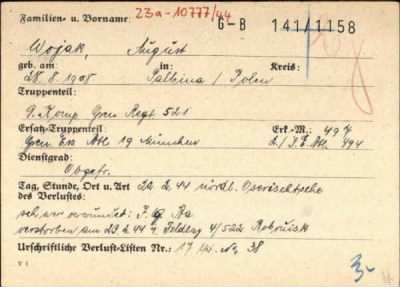 23a-10777/44
Familien- u. Vorname: G-B 141/1158
Wojak, August
geb. am: in: Kreis:
28.8.1908 / Polen
Truppenteil:
9. Komp Gren Regt 521
Ersatz-Truppenteil: Erk.-M.: 497
Gren Ers Btl 19 München 2/I.E.Btl. 494
Dienstgrad:
Obgefr.
Tag, Stunde, Ort u. Art 22. 2. 44 nördl.
des Verlustes:
schwer verwundet: I. G.
verstorben am 23.2.44 Feldlaz 4/522
Urschriftliche Verlust-Listen Nr.: 17 No 38
V 1
3-